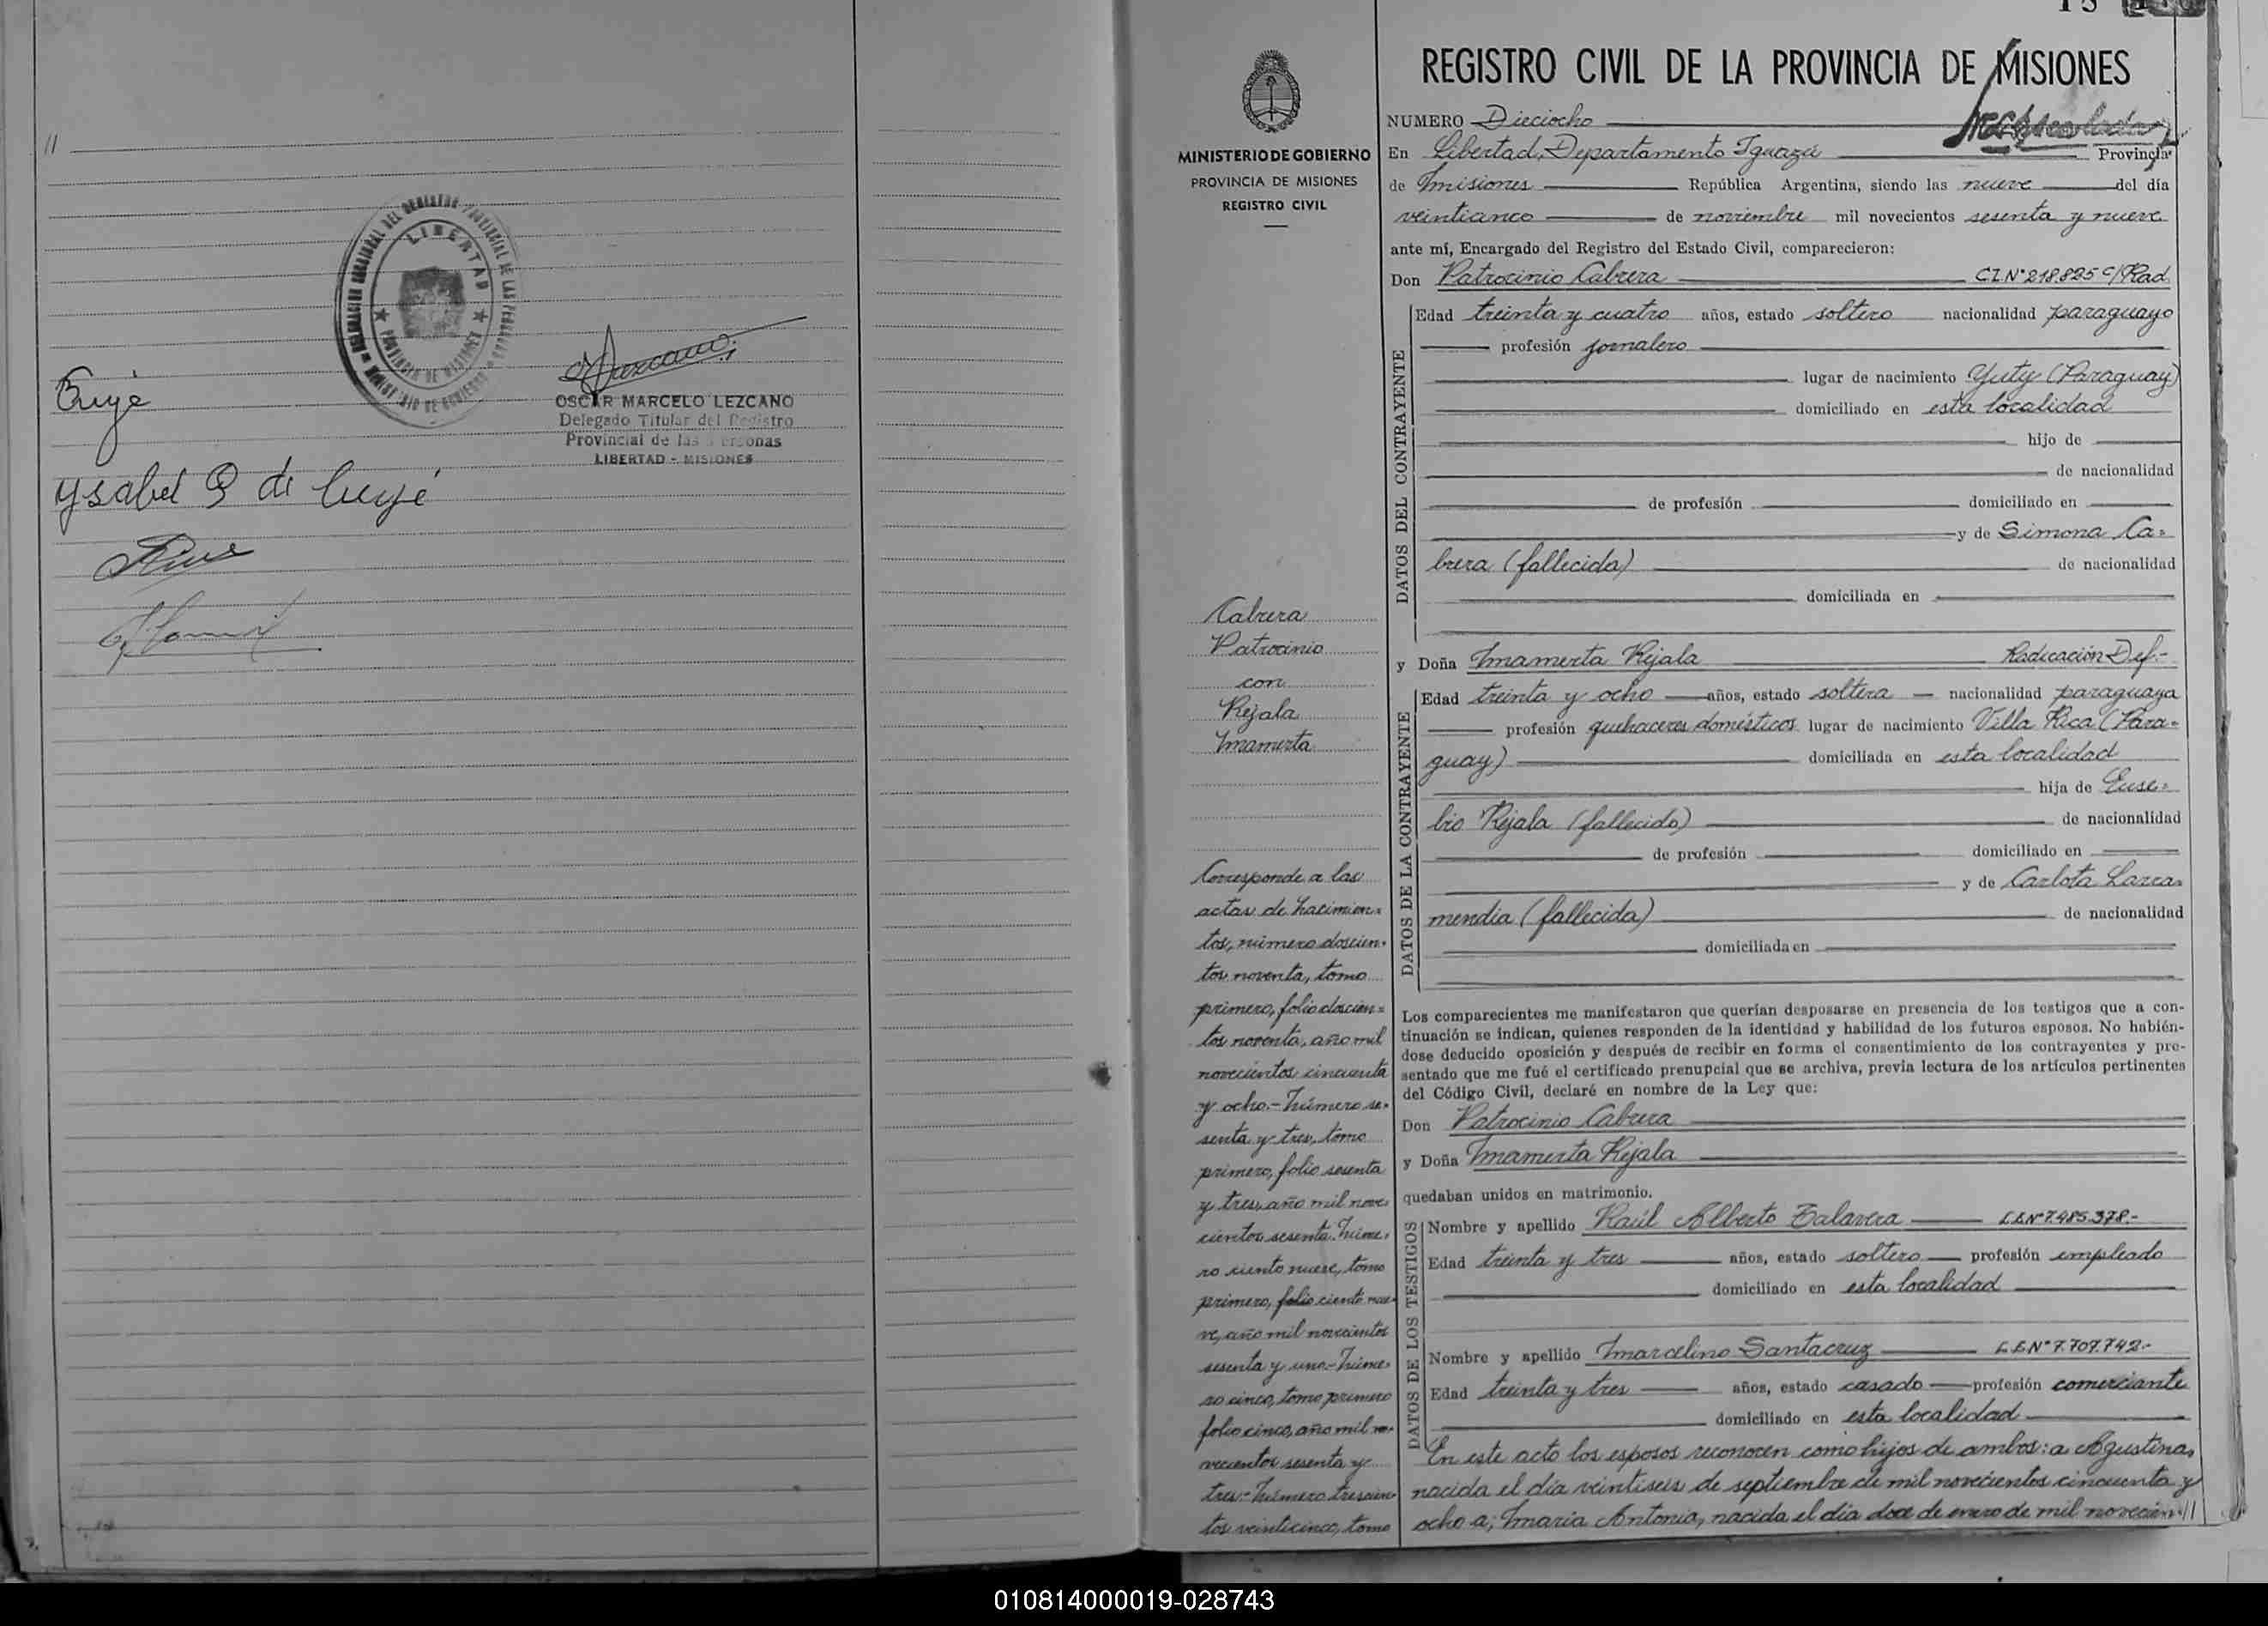 //
LIBERTAD
PROVINCIA DE MISIONES
OSCAR MARCELO LEZCANO
Delegado Titular del Registro
Provincial de las Personas
LIBERTAD - MISIONES
Ysabel Q de Cuyé
MINISTERIO DE GOBIERNO
PROVINCIA DE MISIONES
REGISTRO CIVIL
Cabrera
Patrocinio
con
Rejala
Mamerta
Corresponde a las
actas de nacimien=
tos, número doscien=
tos noventa, tomo
primero, folio doscien=
tos noventa, año mil
novecientos cincuenta
y ocho.- Número se=
senta y tres, tomo
primero, folio sesenta
y tres, año mil nove=
cientos sesenta. Núme=
ro ciento nueve, tomo
primero, folio ciento nue=
ve, año mil novecientos
sesenta y uno.- Núme=
ro cinco, tomo primero
folio cinco, año mil no=
vecientos sesenta y
tres.- Número trescien=
tos veinticinco, tomo
REGISTRO CIVIL DE LA PROVINCIA DE MISIONES
NUMERO Dieciocho
En Libertad, Departamento Iguazú Provincia
de Misiones República Argentina, siendo las nueve del día
veinticinco de noviembre mil novecientos sesenta y nueve
ante mí, Encargado del Registro del Estado Civil, comparecieron:
Don Patrocinio Cabrera C.I.N° 218.825 c/Rad.
DATOS DEL CONTRAYENTE
Edad treinta y cuatro años, estado soltero nacionalidad paraguayo
profesión jornalero
lugar de nacimiento Yuty (Paraguay)
domiciliado en esta localidad
hijo de
de nacionalidad
de profesión domiciliado en
y de Simona Ca=
brera (fallecida) de nacionalidad
domiciliada en
y Doña Mamerta Rejala Radicación Def.-
DATOS DE LA CONTRAYENTE
Edad treinta y ocho años, estado soltera nacionalidad paraguaya
profesión quehaceres domésticos lugar de nacimiento Villa Rica (Para=
guay) domiciliada en esta localidad
hija de Euse=
bio Rejala (fallecido) de nacionalidad
de profesión domiciliado en
y de Carlota Larra=
mendia (fallecida) de nacionalidad
domiciliada en
Los comparecientes me manifestaron que querían desposarse en presencia de los testigos que a con-
tinuación se indican, quienes responden de la identidad y habilidad de los futuros esposos. No habién-
dose deducido oposición y después de recibir en forma el consentimiento de los contrayentes y pre-
sentado que me fué el certificado prenupcial que se archiva, previa lectura de los artículos pertinentes
del Código Civil, declaré en nombre de la Ley que:
Don Patrocinio Cabrera
y Doña Mamerta Rejala
quedaban unidos en matrimonio.
DATOS DE LOS TESTIGOS
Nombre y apellido Raúl Alberto Talavera L.E.N° 7.485.378.-
Edad treinta y tres años, estado soltero profesión empleado
domiciliado en esta localidad
Nombre y apellido Marcelino Santacruz L.E.N° 7.707.742.-
Edad treinta y tres años, estado casado profesión comerciante
domiciliado en esta localidad
En este acto los esposos reconocen como hijos de ambos: a Agustina,
nacida el día veintiseis de septiembre de mil novecientos cincuenta y
ocho a; Maria Antonia, nacida el día doce de enero de mil novecien//
010814000019-028743